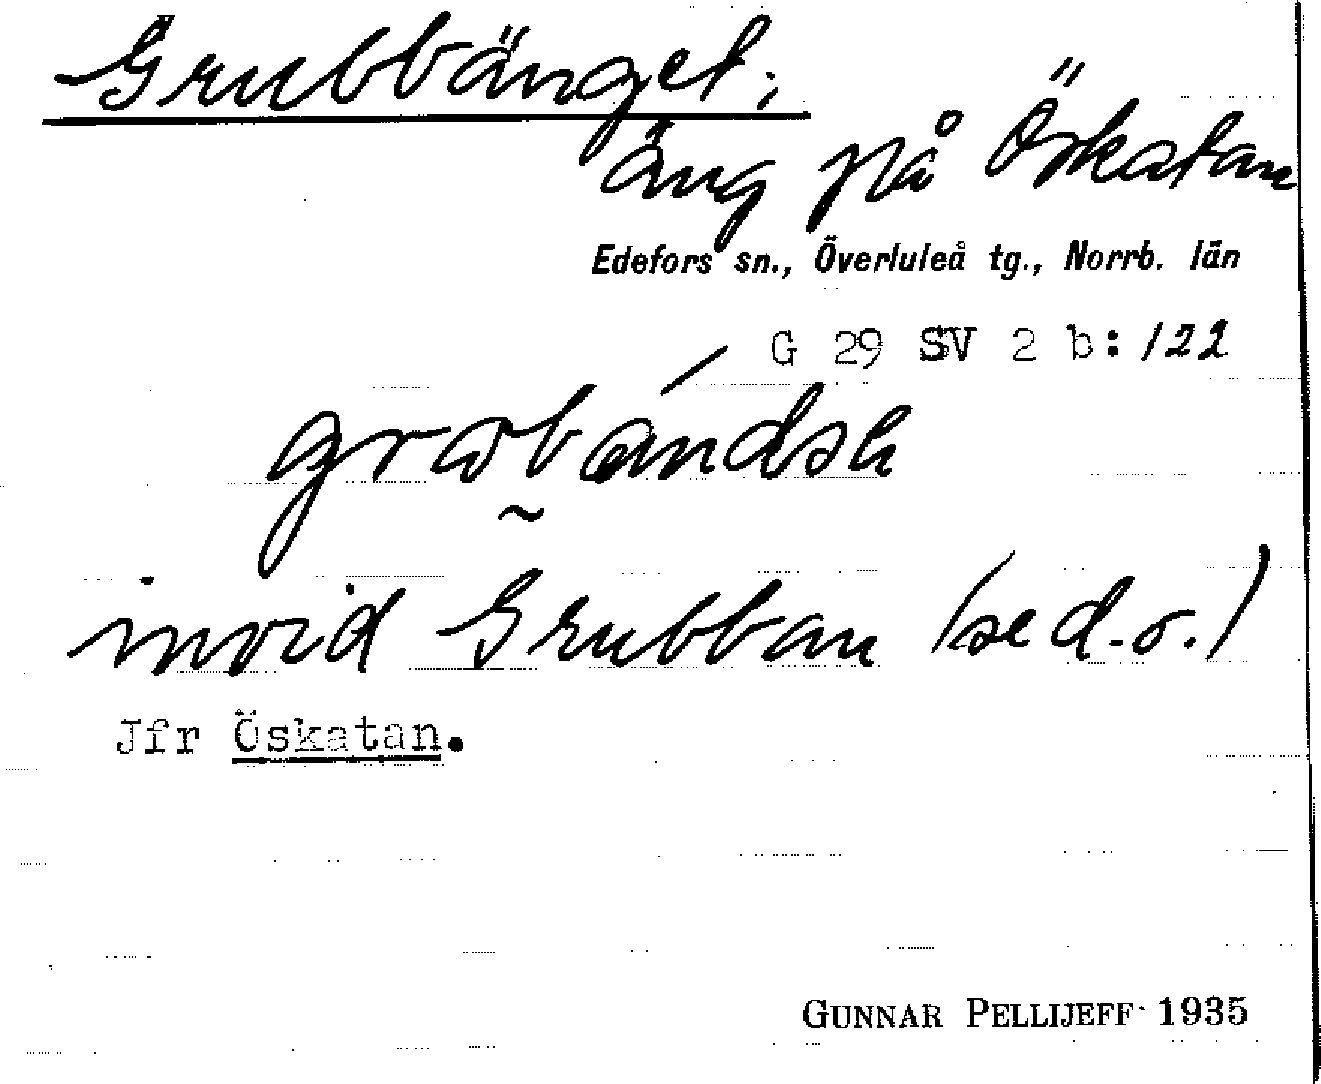 Grubbänget;
äng på Öskatan
Edefors sn., Överluleå tg., Norrb. län
G 29 SV 2 b: 122
invid Grubban (se d. o.)
Jfr Öskatan.
GUNNAR PELLIJEFF 1935